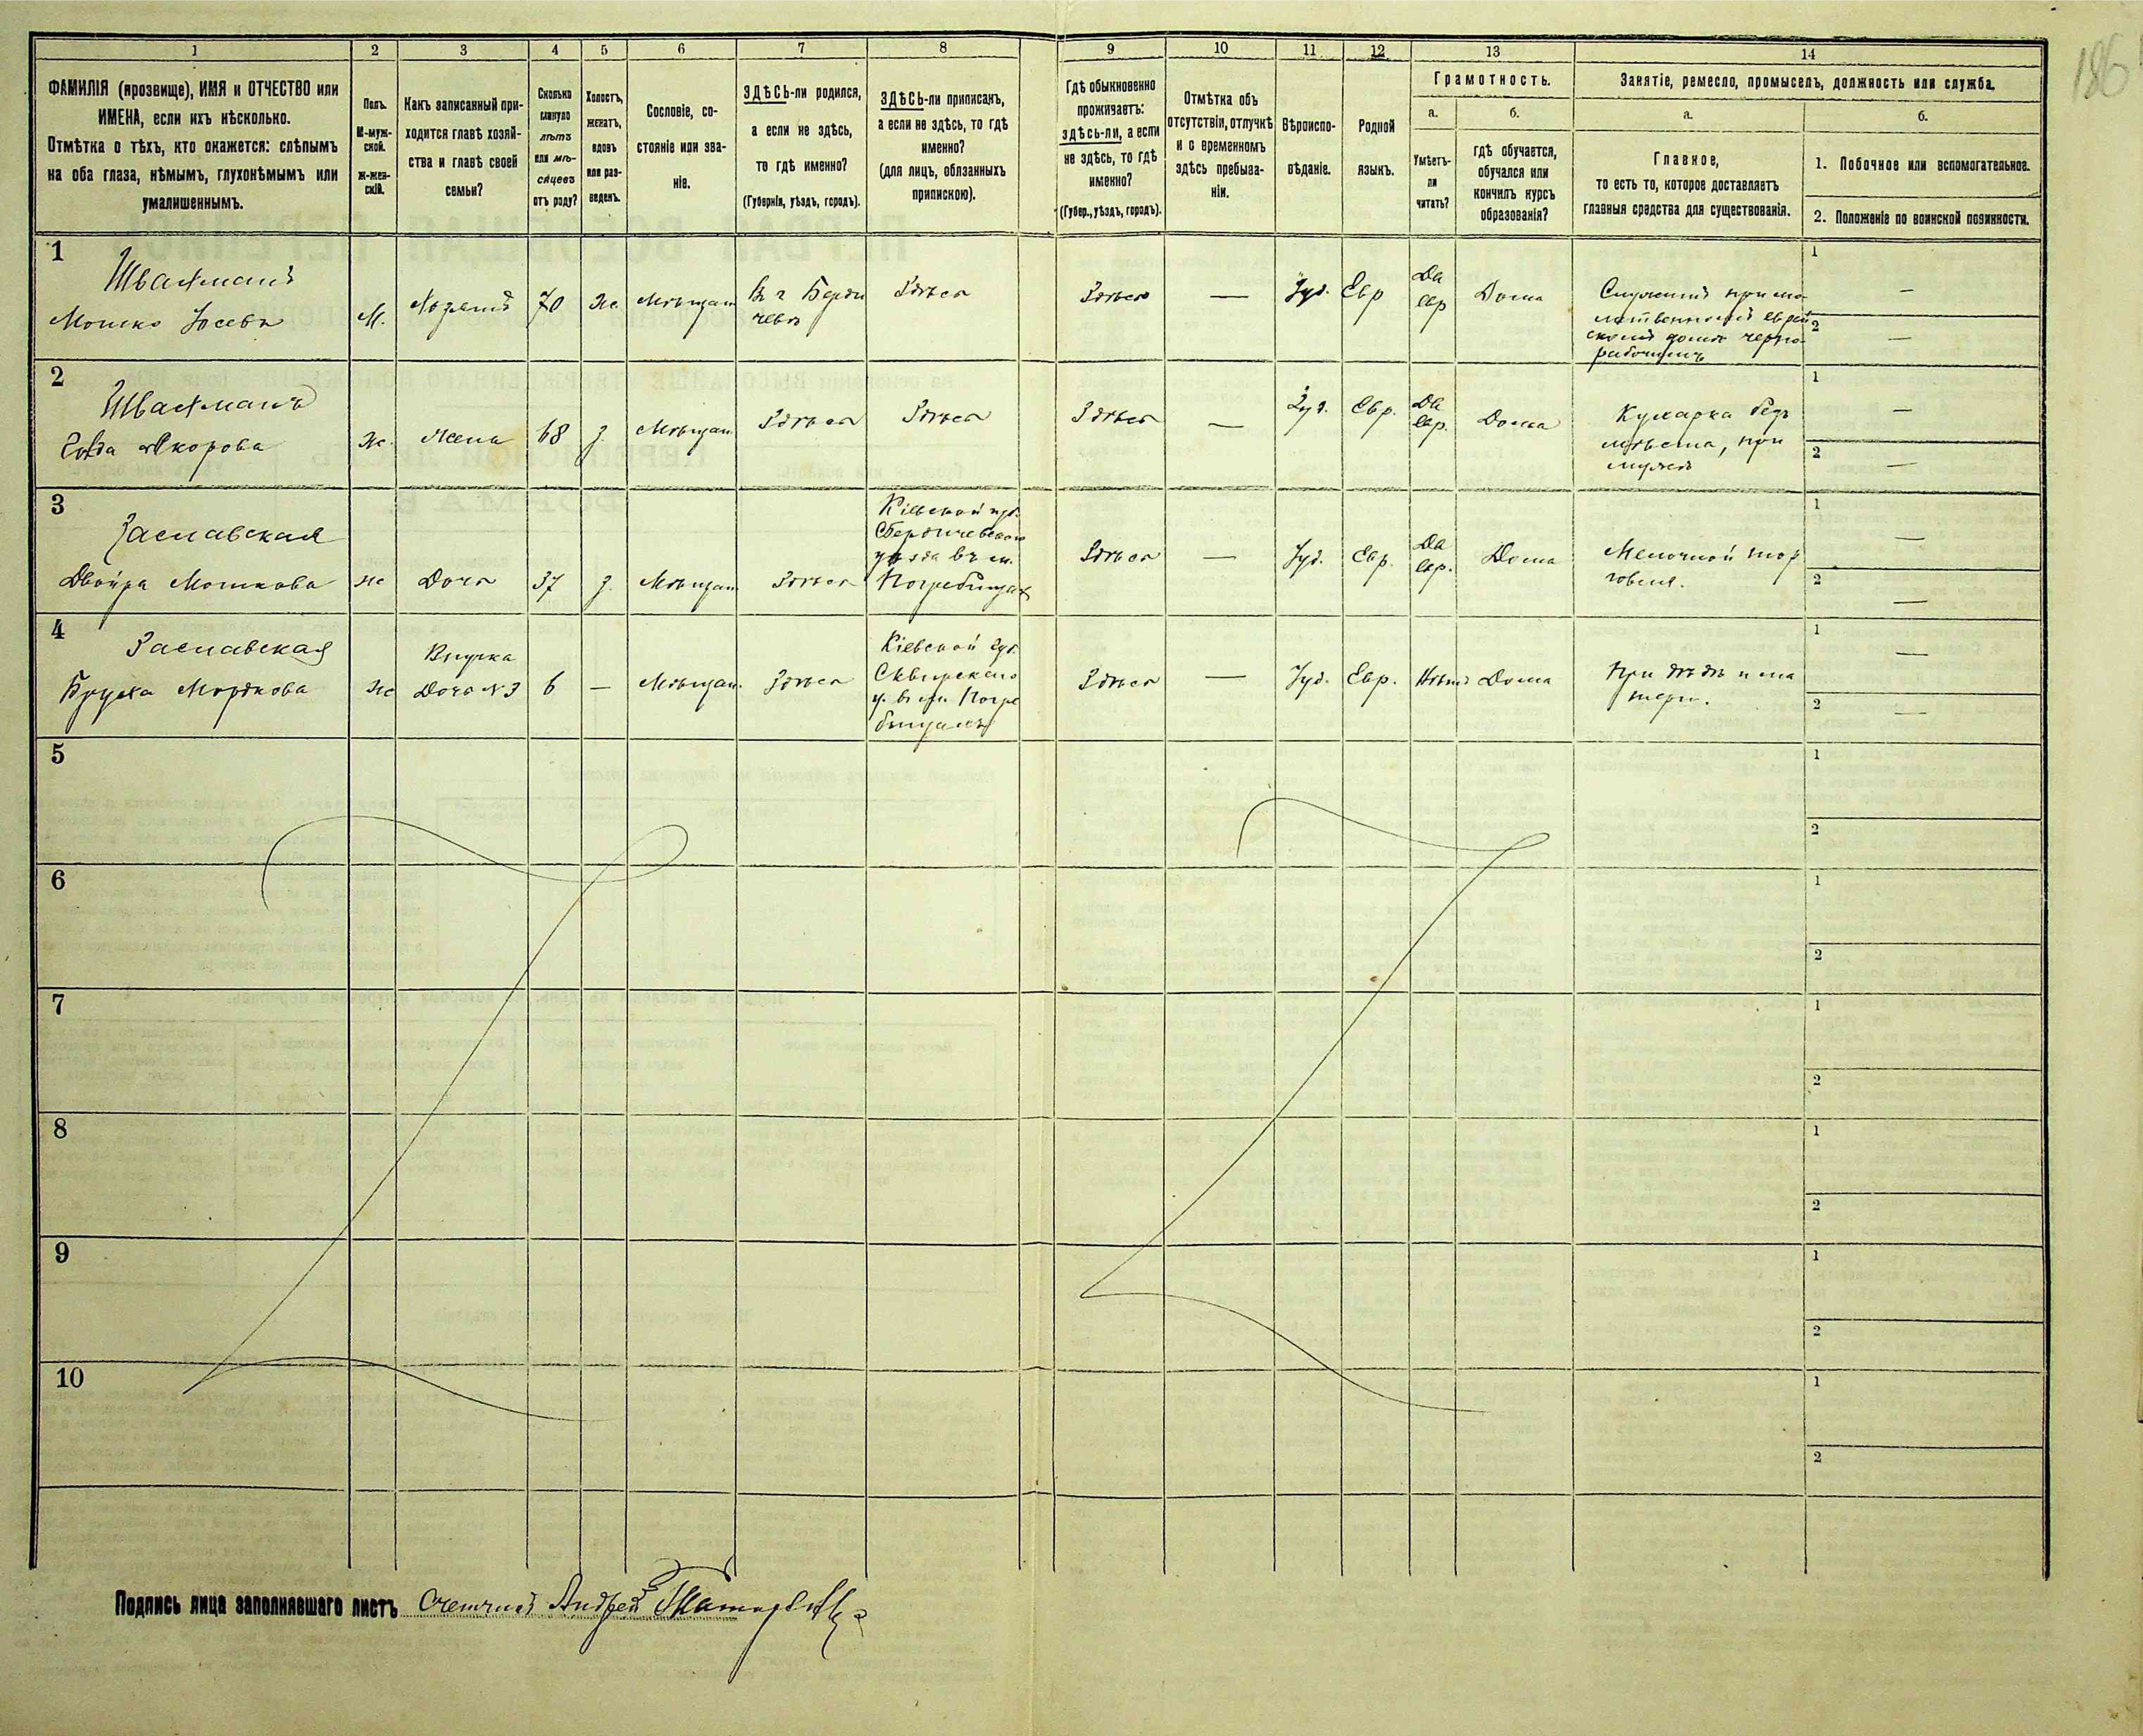 186
1
2
3
4
5
6
7
8
9
10
11
12
13
14
ФАМИЛІЯ (прозвище), ИМЯ и ОТЧЕСТВО или
ИМЕНА, если ихъ нѣсколько.
Отмѣтка о тѣхъ, кто окажется: слѣпымъ
на оба глаза, нѣмымъ, глухонѣмымъ или
умалишеннымъ.
Полъ.
М-муж-
ской.
Ж-жен-
скій.
Какъ записанный при-
ходится главѣ хозяй-
ства и главѣ своей
семьи?
Сколько
минуло
лѣтъ
или мѣ-
сяцевъ
отъ роду?
Холостъ,
женатъ,
вдовъ
или раз-
веденъ.
Сословіе, со-
стояніе или зва-
ніе.
ЗДѢСЬ-ли родился,
а если не здѣсь,
то гдѣ именно?
(Губернія, уѣздъ, городъ).
ЗДѢСЬ-ли приписанъ,
а если не здѣсь, то гдѣ
именно?
(для лицъ, обязанныхъ
припискою).
Гдѣ обыкновенно
проживаетъ:
здѣсь-ли, а если
не здѣсь, то гдѣ
именно?
(Губер., уѣздъ, городъ).
Отмѣтка объ
отсутствіи, отлучкѣ
и о временномъ
здѣсь пребыва-
ніи.
Вѣроиспо-
вѣданіе.
Родной
языкъ.
Грамотность.
а.
Умѣетъ-
ли
читать?
б.
гдѣ обучается,
обучался или
кончилъ курсъ
образованія?
Занятіе, ремесло, промыселъ, должность или служба.
а.
Главное,
то есть то, которое доставляетъ
главныя средства для существованія.
б.
1. Побочное или вспомогательное.
2. Положеніе по воинской повинности.
1
Мошко
М.
70
же
Мѣщан
Въ г Берди
чевѣ
Здѣсь
Здѣсь
—
Іуд.
Евр
Да
евр
Дома
Служитъ при мо-
литвенномъ еврей
скомъ домѣ черно-
рабочимъ
1
—
2
—
2
Же.
Жена
68
з.
Мѣщан
Здѣсь
Здѣсь
Здѣсь
—
Іуд.
Евр.
Да
евр.
Дома
Кухарка безъ
мѣста, при
мужѣ
1
—
2
—
3
Заславская
Двойра Мошкова
же
Дочь
37
з.
Мѣщан
Здѣсь
Кіевской губ.
уѣзда въ м.
Погребищахъ
Здѣсь
—
Іуд.
Евр.
Да
евр.
Дома
Мелочной тор
говля.
1
—
2
—
4
Заславская
Мордкова
же
Внучка
Дочь №3
6
—
Мѣщан.
Здѣсь
Кіевской губ.
Сквирскаго
у. въ м. Погре
бищахъ
Здѣсь
—
Іуд.
Евр.
Нѣтъ
Дома
При дѣдѣ и ма
тери.
1
—
2
—
5
1
2
6
1
2
7
1
2
8
1
2
9
1
2
10
1
2
Подпись лица заполнявшаго листъ Счетчикъ Андрей